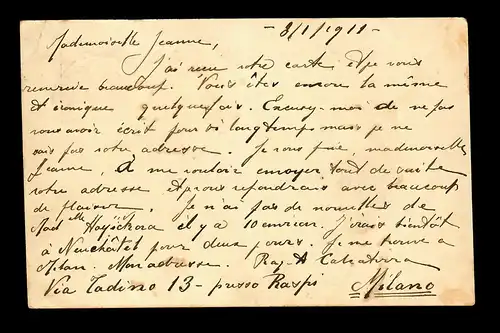 8/1/1911 -
Mademoiselle Jeanne,
J'ai reçu votre carte et je vous
remercie beaucoup. Vous êtes encore la même
et ironique quelquefois. Excusez-moi de ne pas
vous avoir écrit pour si longtemps mais je ne
sais pas votre adresse. Je vous prie, mademoiselle
Jeanne, à me vouloir envoyer tout de suite
votre adresse et je vous répondrais avec beaucoup
de plaisir. Je n'ai pas de nouvelles de
Mad^elle il y a 10 environ. J'irais bientôt
à Neuchâtel pour deux jours. Je me trouve à
Milan. Mon adresse. Rag. A. Calcaterra
Via Tadino 13 - presso Raspi Milano